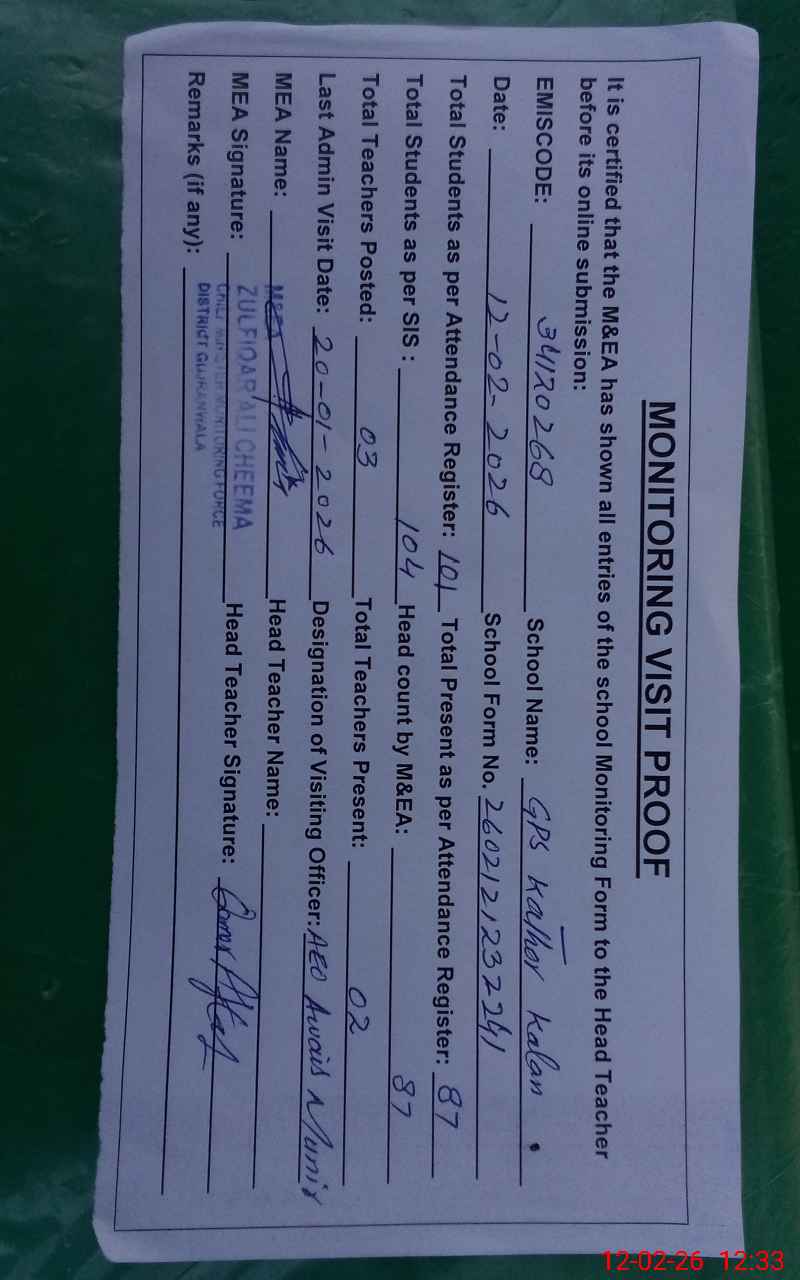 MONITORING VISIT PROOF
It is certified that the M&EA has shown all entries of the school Monitoring Form to the Head Teacher
before its online submission:
EMISCODE: 34120268 School Name: GPS Kathor Kalan
Date: 12-02-2026 School Form No. 2602121232241
Total Students as per Attendance Register: 101 Total Present as per Attendance Register: 87
Total Students as per SIS : 104 Head count by M&EA: 87
Total Teachers Posted: 03 Total Teachers Present: 02
Last Admin Visit Date: 20-01-2026 Designation of Visiting Officer: AEO Awais Munir
MEA Name: Head Teacher Name:
MEA Signature: ZULFIQAR ALI CHEEMA Head Teacher Signature:
CHIEF MINISTER MONITORING FORCE
DISTRICT GUJRANWALA
Remarks (if any):
12-02-26 12:33